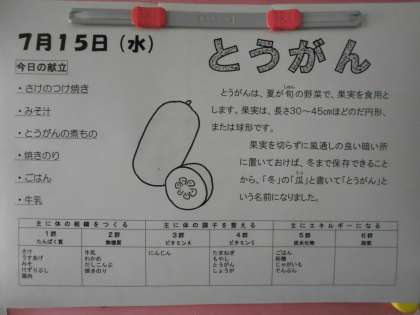 7月15日（水）
とうがん
今日の献立
・さけのつけ焼き
・みそ汁
・とうがんの煮もの
・焼きのり
・ごはん
・牛乳
とうがんは、夏が旬の野菜で、果実を食用と
します。果実は、長さ30～45cmほどのだ円形、
または球形です。
果実を切らずに風通しの良い暗い所
に置いておけば、冬まで保存できること
から、「冬」の「瓜」と書いて「とうがん」と
いう名前になりました。
主に体の組織をつくる 主に体の調子を整える 主にエネルギーになる
1群 2群 3群 4群 5群 6群
たんぱく質 無機質 ビタミンA ビタミンC 炭水化物 脂質
さけ 牛乳 にんじん たまねぎ ごはん
うすあげ わかめ もやし 砂糖
みそ だしこんぶ とうがん じゃがいも
けずりぶし 焼きのり しょうが でんぷん
鶏肉